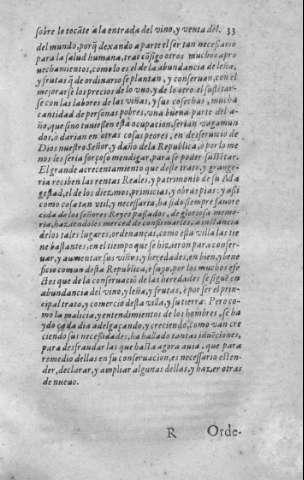 sobre lo tocãte a la entrada del vino, y venta dél. 33
del mundo, porq̃ dexando a parte el ser tan necessario
para la salud humana, trae cõsigo otros muchos apro
uechamientos, como lo es el de la abundancia de leña,
y frutas q̃ de ordinario se plantan, y conseruan, con el
mejorarse los precios de lo vno, y de lo otro el sustẽtar-
se con las labores de las viñas, y sus cosechas, mucha
cantidad de personas pobres, vna buena parte del a-
ño, que sino tuuiessen esta ocupacion, serian vagamun
dos, o darian en otras cosas peores, en deseruicio de
Dios nuestro Señor, y daño de la Republica, o por lo me
nos les seria forçoso mendigar, para se poder sustẽtar.
El grande acrecentamiento que deste trato, y grange-
ria reciben las rentas Reales, y patrimonio de su Ma
gestad, el de los diezmos, primicias, y obras pias: y assi
como cosa tan vtil, y necessaria, ha sido siempre fauore
cida de los señores Reyes passados, de gloriosa memo-
ria, haziendoles merced de confirmarles, a instancia
de los tales lugares, ordenanças, como esta villa las tie
ne bastantes, en el tiempo que se hizieron para conser-
uar, y aumentar sus viñas, y heredades, en bien, y bene
ficio comun desta Republica, e suyo, por los muchos efe
ctos que de la conseruaciõ de las heredades se siguẽ en
abundancia del vino, y leña, y frutas, o por ser el prin-
cipal trato, y comercio desta villa, y su tierra. Pero co-
mo la malicia, y entendimientos de los hombres, se ha
ydo cada dia adelgaçando, y creciendo, como van cre
ciendo sus necessidades, ha hallado tantas inuẽciones,
para desfraudar las que hasta agora auia, que para
remedio dellas en su conseruacion, es necessario esten-
der, declarar, y ampliar algunas dellas, y hazer otras
de nueuo.
R Orde-